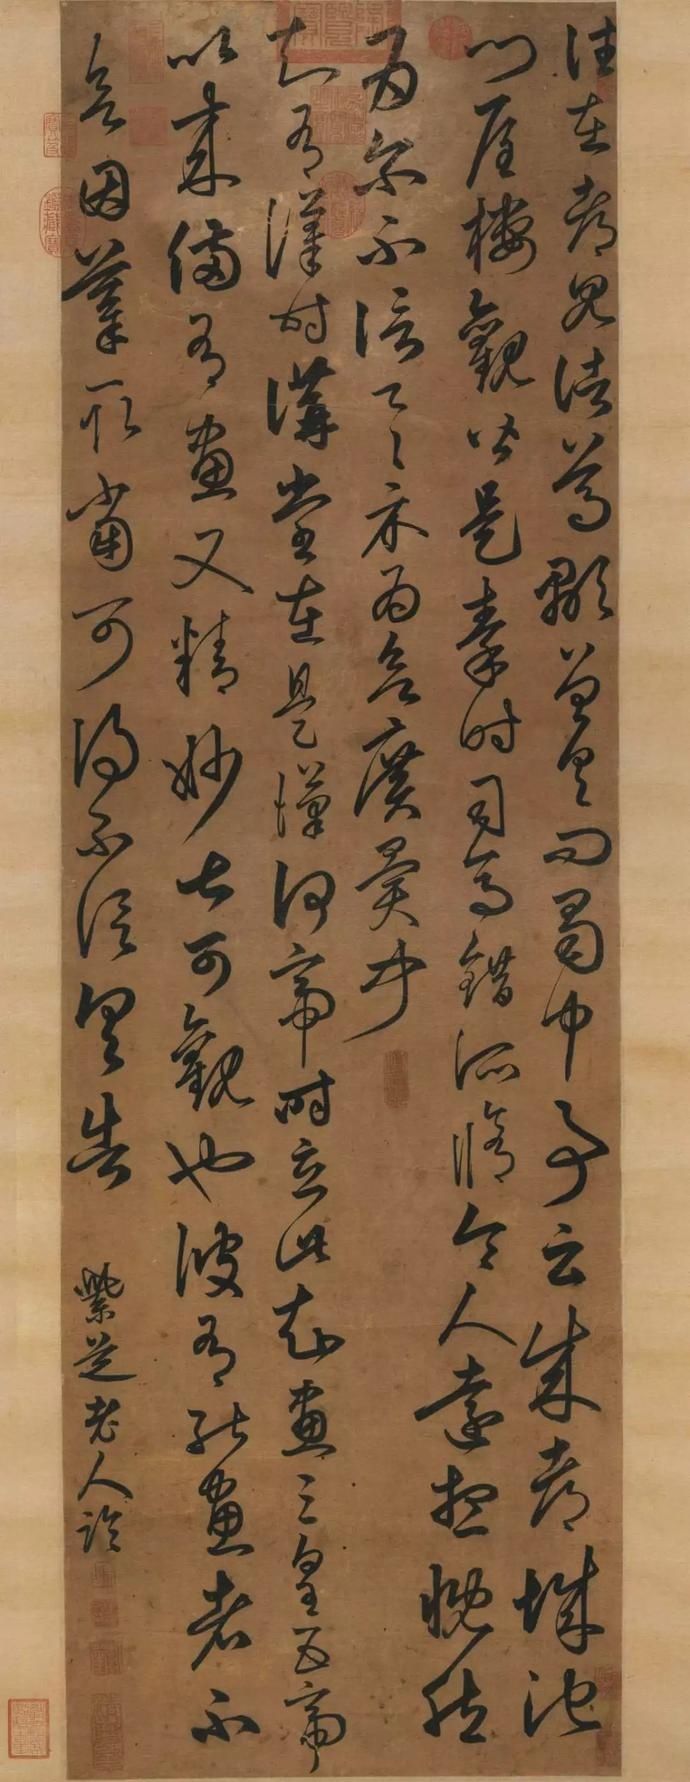 往在都見諸葛顒曾具問蜀中事云成都城池
門屋樓觀皆是秦時司馬錯所脩令人遠想慨然
為爾不信一一示為欲廣異聞
知有漢時講堂在是漢何帝時立此知畫三皇五帝
以來備有畫又精妙甚可觀也彼有能畫者不
欲因摹取當可得不信具告 紫芝老人臨